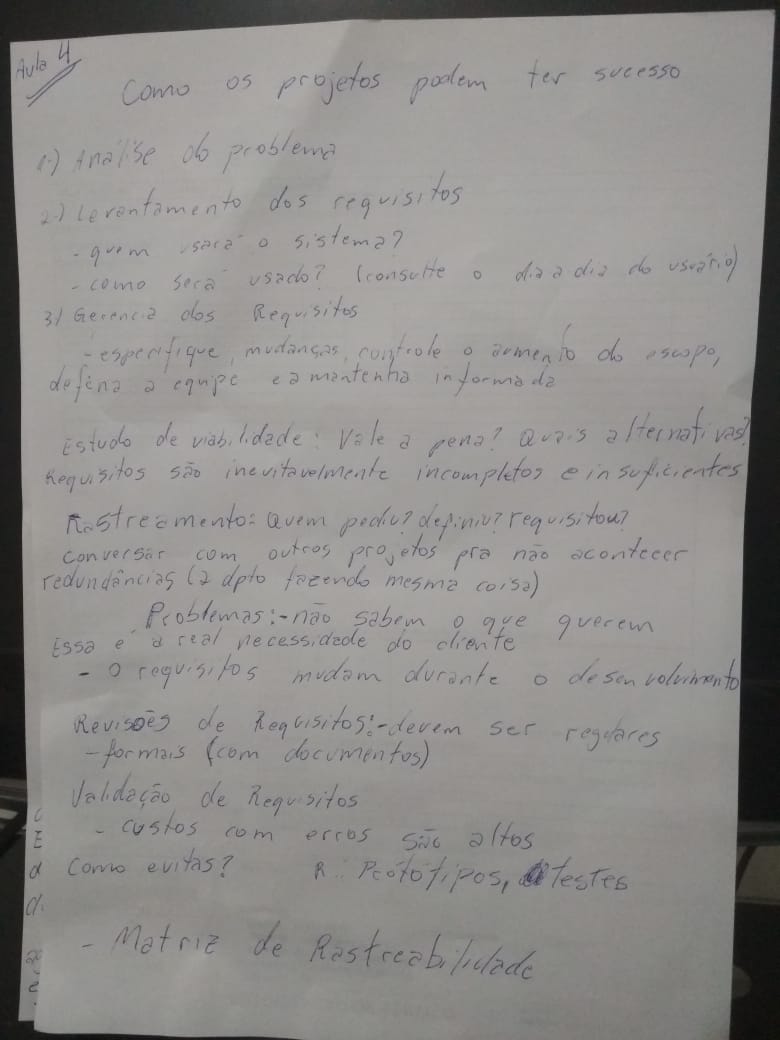 Aula 4
Como os projetos podem ter sucesso
1-) Análise do problema
2-) Levantamento dos requisitos
- quem usará o sistema?
- como será usado? (consulte o dia a dia do usuário)
3) Gerencia dos Requisitos
- especifique, mudanças, controle o aumento do escopo,
defina a equipe e a mantenha informada
Estudo de viabilidade: Vale a pena? Quais alternativas?
Requisitos são inevitavelmente incompletos e insuficientes
Rastreamento: Quem pediu? definiu? requisitou?
conversar com outros projetos pra não acontecer
redundâncias (2 dpto fazendo mesma coisa)
Problemas: - não sabem o que querem
Essa é a real necessidade do cliente
- O requisitos mudam durante o desenvolvimento
Revisões de Requisitos: - devem ser regulares
- formais (com documentos)
Validação de Requisitos
- custos com erros são altos
Como evitas? R: Protótipos, testes
- Matriz de Rastreabilidade